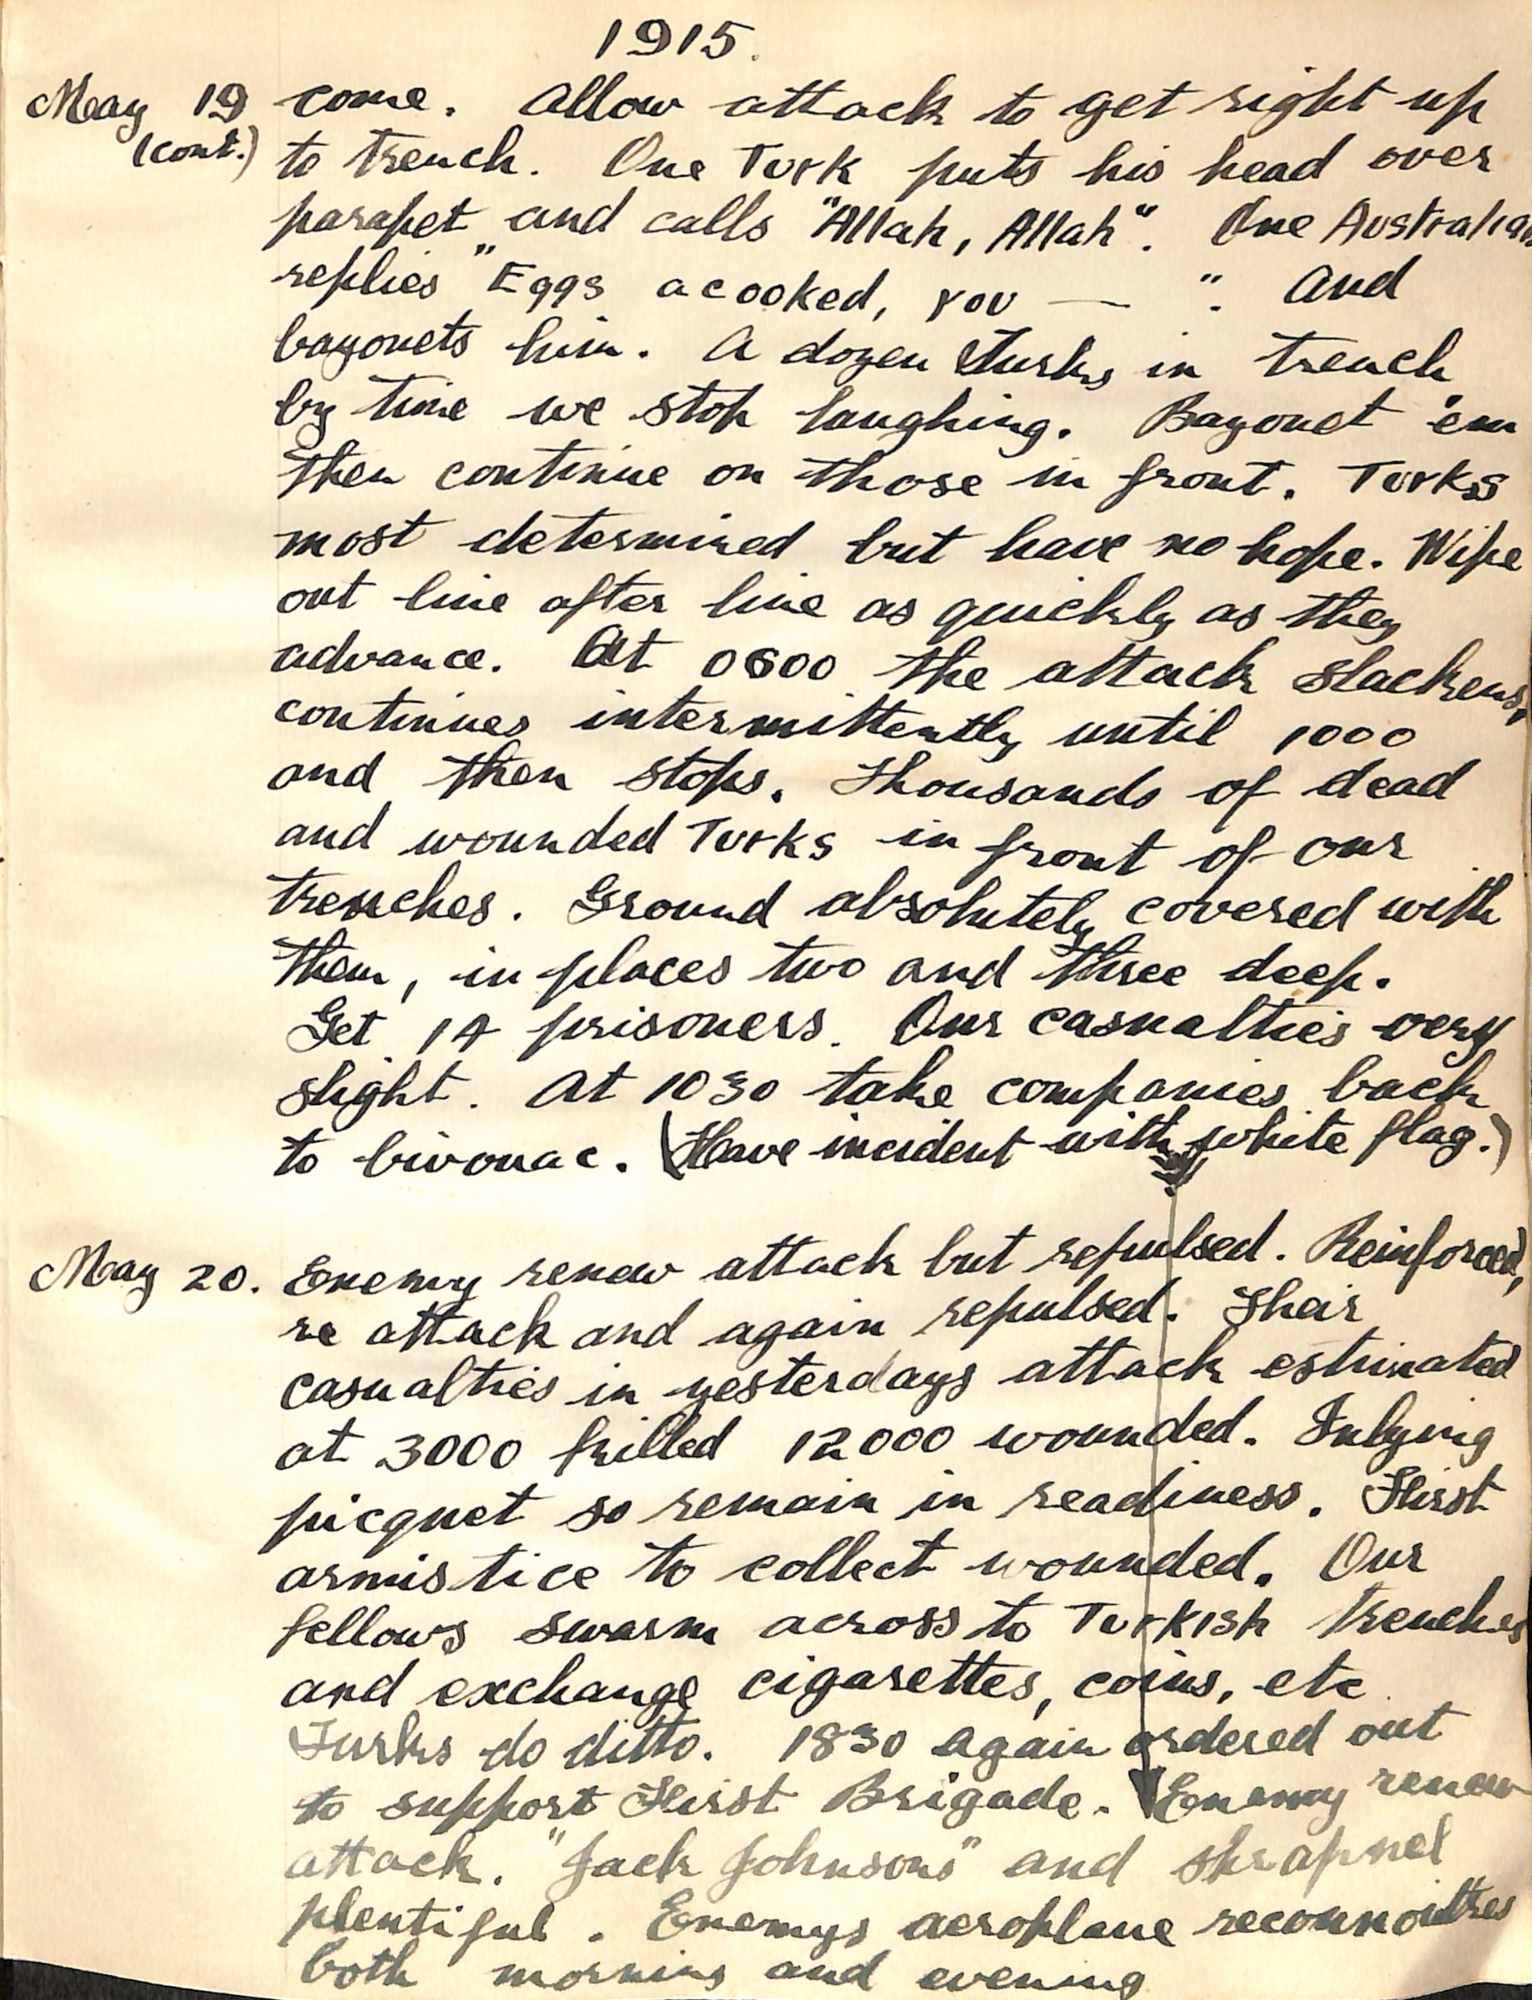 1915.
May 19 come. Allow attack to get right up
(cont.) to trench. One Turk puts his head over
parapet and calls "Allah, Allah". One Australian
replies "Eggs a cooked, you — ". And
bayonets him. A dozen Turks in trench
by time we stop laughing. Bayonet 'em
then continue on those in front. Turks
most determined but have no hope. Wipe
out line after line as quickly as they
advance. At 0600 the attack slackens,
continues intermittently until 1000
and then stops. Thousands of dead
and wounded Turks in front of our
trenches. Ground absolutely covered with
them, in places two and three deep.
Get 14 prisoners. Our casualties very
slight. At 1030 take companies back
to bivouac. (Have incident with white flag.)
May 20. Enemy renew attack but repulsed. Reinforced,
re attack and again repulsed. Their
casualties in yesterdays attack estimated
at 3000 killed 12000 wounded. Inlying
picquet so remain in readiness. First
armistice to collect wounded. Our
fellows swarm across to Turkish trenches
and exchange cigarettes, coins, etc
Turks do ditto. 1830 again ordered out
to support First Brigade. Enemy renew
attack. "Jack Johnsons" and shrapnel
plentiful. Enemys aeroplane reconnoitres
both morning and evening